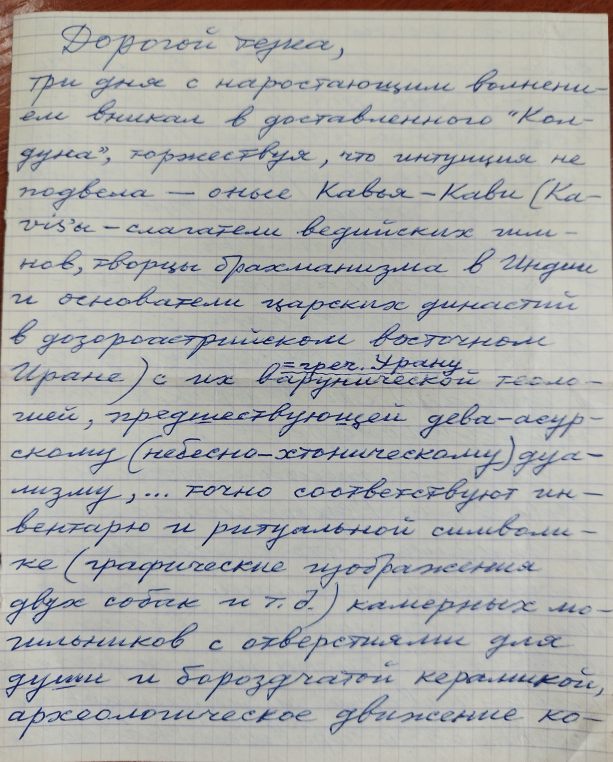 Дорогой тезка,
три дня с наростающим волнени-
ем вникал в доставленного "Кол-
дуна", торжествуя, что интуиция не
подвела — оные Кавья-Кави (Ka-
vis'ы - слагатели ведийских гим-
нов, творцы брахманизма в Индии
и основатели царских династий
в дозороастрийском восточном
=греч. Урану
Иране) с их варунической теоло-
гией, предшествующей дева-асур-
скому (небесно-хтоническому) дуа-
лизму, ... точно соответствуют ин-
вентарю и ритуальной символи-
ке (графические изображения
двух собак и т.д.) камерных мо-
гильников с отверстиями для
души и бороздчатой керамикой,
археологическое движение ко-